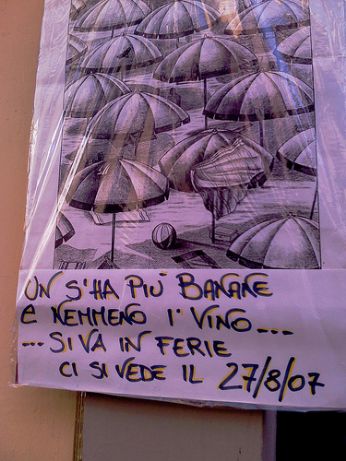 UN S'HA PIÙ BANANE
E NEMMENO I' VINO....
...SI VA IN FERIE
CI SI VEDE IL 27/8/07